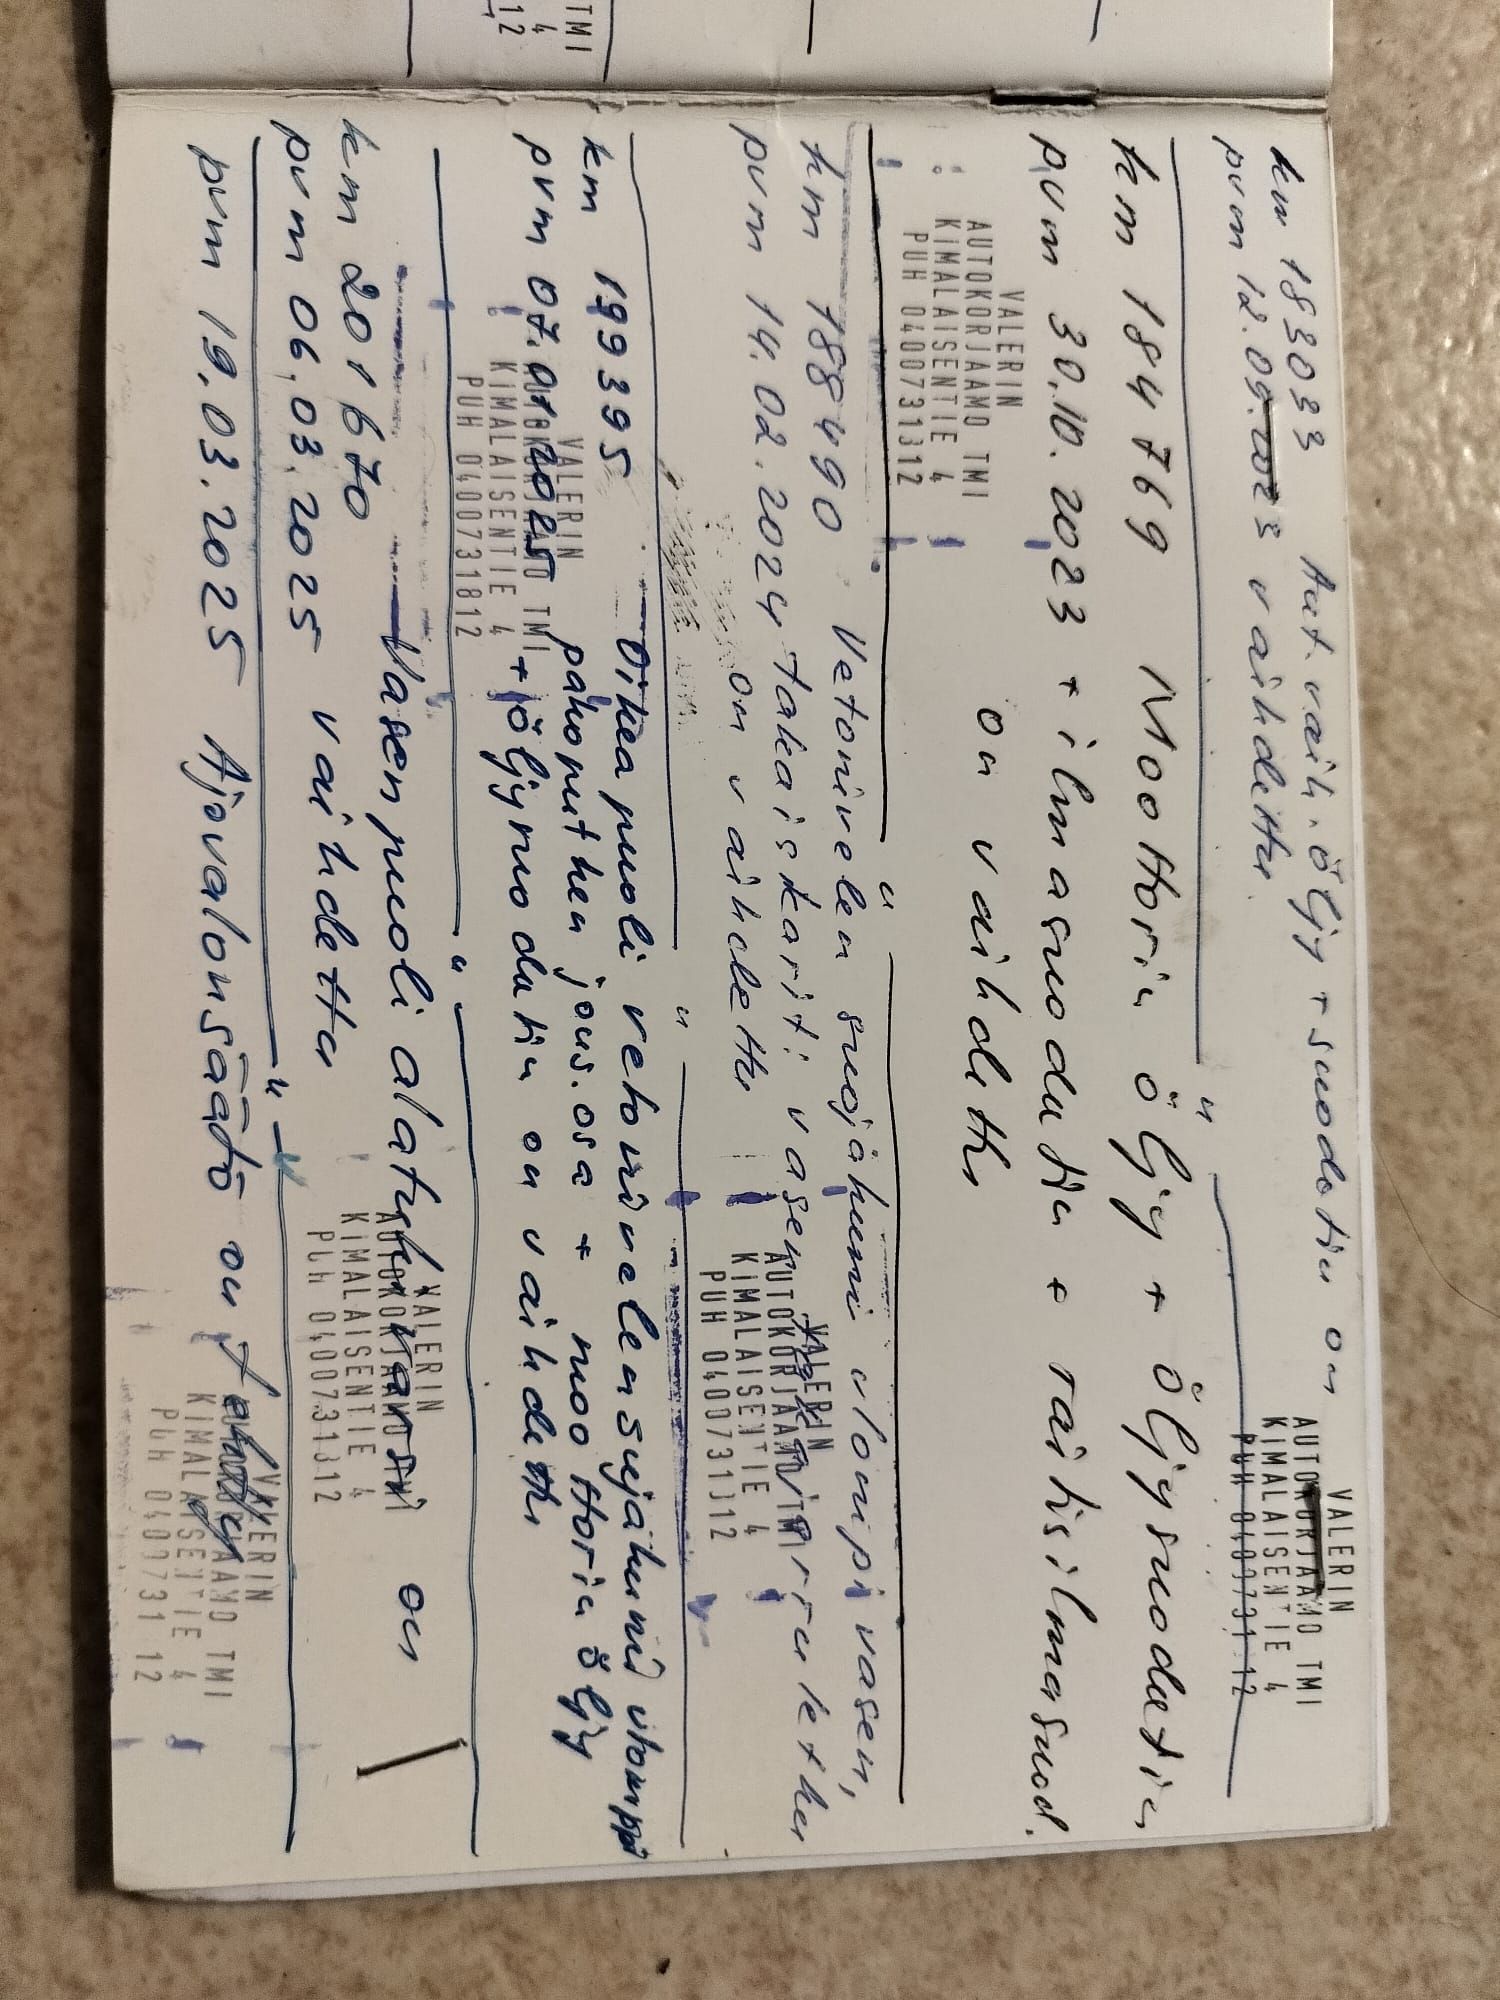 km 183033 Aut. vaih. öljy + suodatin on
pvm 12.09. vaihdettu.
VALERIN
AUTOKORJAAMO TMI
KIMALAISENTIE 4
PUH 0400731312
km 184769 Moottorin öljy + öljysuodatin
pvm 30.10.2023 + ilmasuodatin + raitisilmasuod.
on vaihdettu
VALERIN
AUTOKORJAAMO TMI
KIMALAISENTIE 4
PUH 0400731312
km 188490 Vetonivelen suojakumi ulompi vasen,
pvm 14.02.2024 takaiskarit: vasen
on vaihdettu
VALERIN
AUTOKORJAAMO TMI
KIMALAISENTIE 4
PUH 0400731312
km 199395 Oikea puoli vetonivelen suojakumi ulompi
pvm 07.01.2025 pakoputken jous.osa + moottorin öljy
+ öljynsuodatin on vaihdettu
VALERIN
AUTOKORJAAMO TMI
KIMALAISENTIE 4
PUH 0400731312
km 201670 Vasen puoli alatukivarsi on
pvm 06.03.2025 vaihdettu
VALERIN
AUTOKORJAAMO TMI
KIMALAISENTIE 4
PUH 0400731312
pvm 19.03.2025 Ajovalonsäätö on tehty
VALERIN
AUTOKORJAAMO TMI
KIMALAISENTIE 4
PUH 0400731312